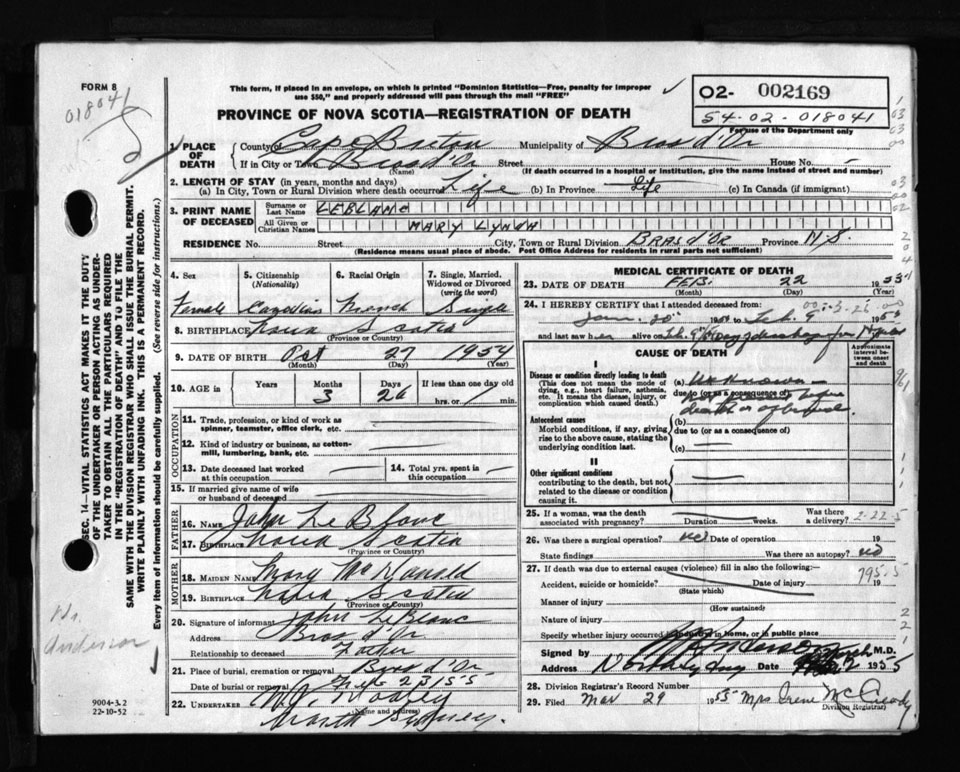 FORM 8
018041
This form, if placed in an envelope, on which is printed "Dominion Statistics—Free, penalty for improper
use $50," and properly addressed will pass through the mail "FREE"
PROVINCE OF NOVA SCOTIA—REGISTRATION OF DEATH
02- 002169
54-02-018041
For use of the Department only
1. PLACE OF DEATH
County of Cape Breton Municipality of Bras d'Or
If in City or Town Bras d'Or Street House No. -
(Name) (If death occurred in a hospital or institution, give the name instead of street and number)
2. LENGTH OF STAY (in years, months and days)
(a) In City, Town or Rural Division where death occurred Life (b) In Province Life (c) In Canada (if immigrant)
3. PRINT NAME OF DECEASED
Surname or Last Name LEBLANC
All Given or Christian Names MARY LYNDA
RESIDENCE No. Street City, Town or Rural Division BRAS d'OR Province N.S.
(Residence means usual place of abode. Post Office Address for Residents in rural parts not sufficient)
4. Sex
Female
5. Citizenship
(Nationality)
Canadian
6. Racial Origin
French
7. Single, Married, Widowed or Divorced
(write the word)
Single
8. BIRTHPLACE Nova Scotia
(Province or Country)
9. DATE OF BIRTH Oct 27 1954
(Month) (Day) (Year)
10. AGE in Years Months Days If less than one day old
3 26 hrs. or min.
OCCUPATION
11. Trade, profession, or kind of work as spinner, teamster, office clerk, etc.
12. Kind of industry or business, as cotton-mill, lumbering, bank, etc.
13. Date deceased last worked at this occupation
14. Total yrs. spent in this occupation
15. If married give name of wife or husband of deceased
FATHER
16. NAME John LeBlanc
17. BIRTHPLACE Nova Scotia
(Province or Country)
MOTHER
18. MAIDEN NAME Mary
19. BIRTHPLACE Nova Scotia
(Province or Country)
20. Signature of informant John LeBlanc
Address Bras d'Or
Relationship to deceased Father
21. Place of burial, cremation or removal Bras d'Or
Date of burial or removal Feb 23/55
22. UNDERTAKER
(Name and address)
North Sydney.
MEDICAL CERTIFICATE OF DEATH
23. DATE OF DEATH FEB. 22 19
(Month) (Day) (Year)
24. I HEREBY CERTIFY that I attended deceased from:
Jan. 20 19 to Feb. 9 1955
and last saw her alive on Feb. 9
CAUSE OF DEATH
Approximate interval between onset and death
I
Disease or condition directly leading to death
(This does not mean the mode of dying, e.g., heart failure, asthenia, etc. It means the disease, injury, or complication which caused death.)
(a) Unknown -
due to (or as a consequence of)
Antecedent causes
Morbid conditions, if any, giving rise to the above cause, stating the underlying condition last.
(b)
due to (or as a consequence of)
(c)
II
Other significant conditions
contributing to the death, but not related to the disease or condition causing it.
25. If a woman, was the death associated with pregnancy? Duration weeks. Was there a delivery?
2-22-5
26. Was there a surgical operation? no Date of operation 19
State findings Was there an autopsy? no
27. If death was due to external causes (violence) fill in also the following:
795.5
Accident, suicide or homicide? Date of injury 19
(State which)
Manner of injury
(How sustained)
Nature of injury
Specify whether injury occurred in industry, in home, or in public place
Signed by M.D.
Address North Sydney Date 1955
28. Division Registrar's Record Number
29. Filed Mar 29 1955 Mrs Irene McCready
Division Registrar)
SEC. 14—VITAL STATISTICS ACT MAKES IT THE DUTY
OF THE UNDERTAKER OR PERSON ACTING AS UNDER-
TAKER TO OBTAIN ALL THE PARTICULARS REQUIRED
IN THE "REGISTRATION OF DEATH" AND TO FILE THE
SAME WITH THE DIVISION REGISTRAR WHO SHALL ISSUE THE BURIAL PERMIT.
WRITE PLAINLY WITH UNFADING INK. THIS IS A PERMANENT RECORD.
Every item of information should be carefully supplied. (See reverse side for instructions.)
Dr. Anderson
9004-3.2
22-10-52